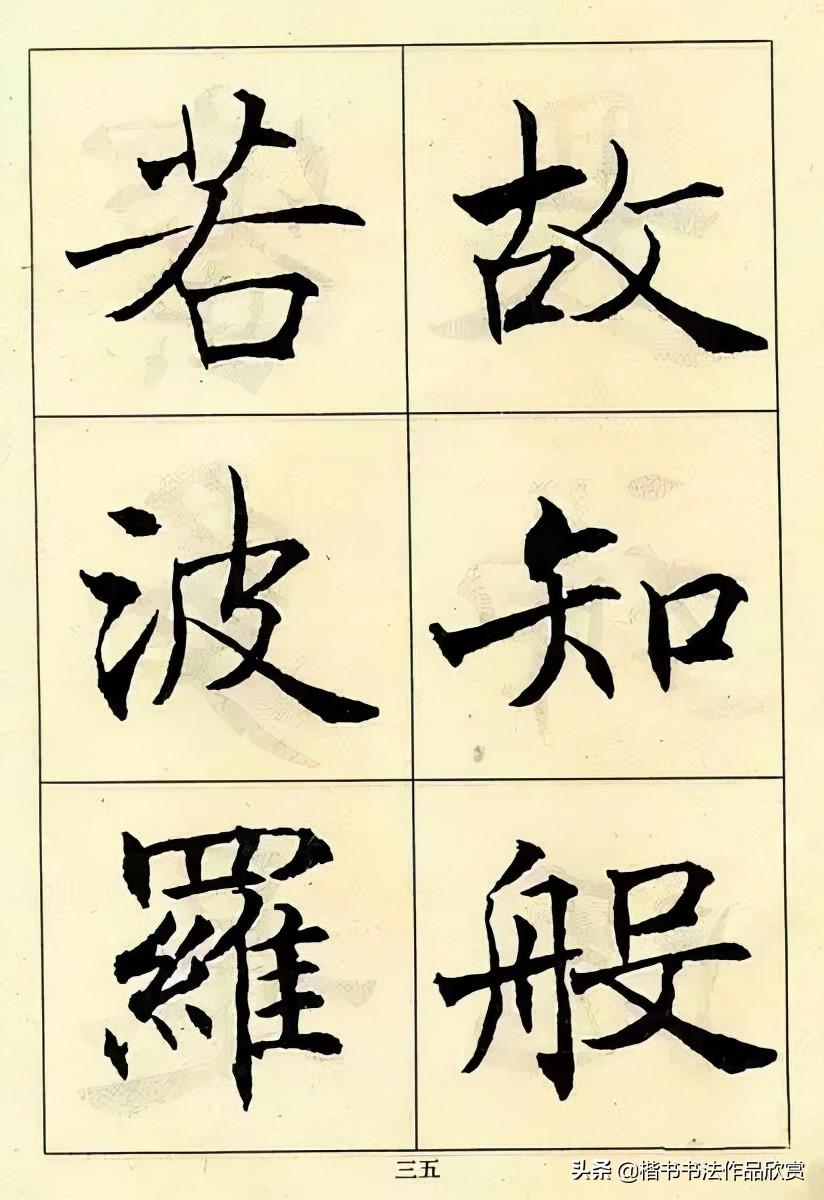 故知般
若波羅
三五
头条 @楷书书法作品欣赏